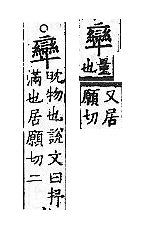 量也
又居
願切
物也說文曰抒
滿也居願切二